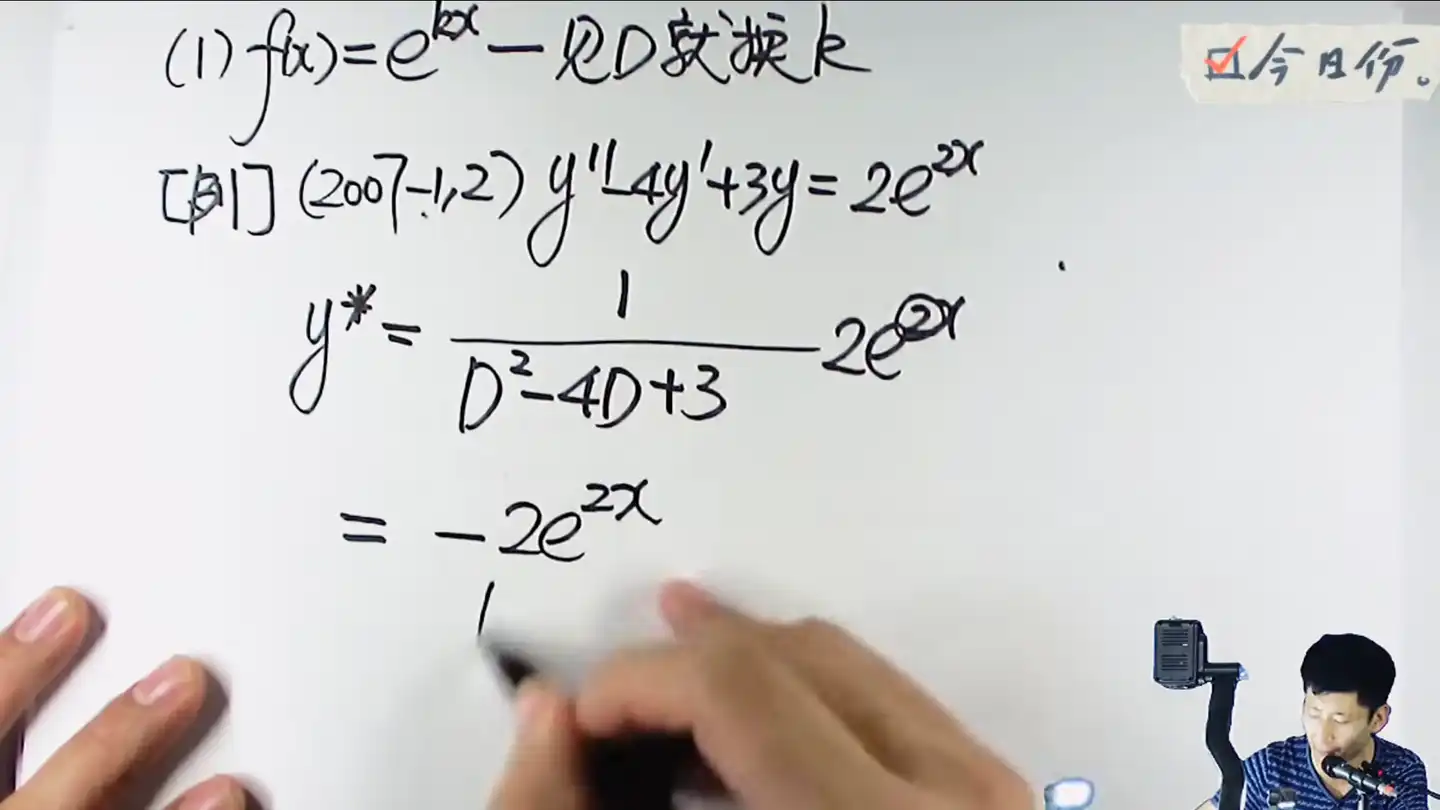 (1) f(x)=e^{kx} — 见D就换k
今日份。
[例1] (2007-1,2) y''-4y'+3y=2e^{2x}
y*= \frac{1}{D^2-4D+3} 2e^{2x}
= -2e^{2x}